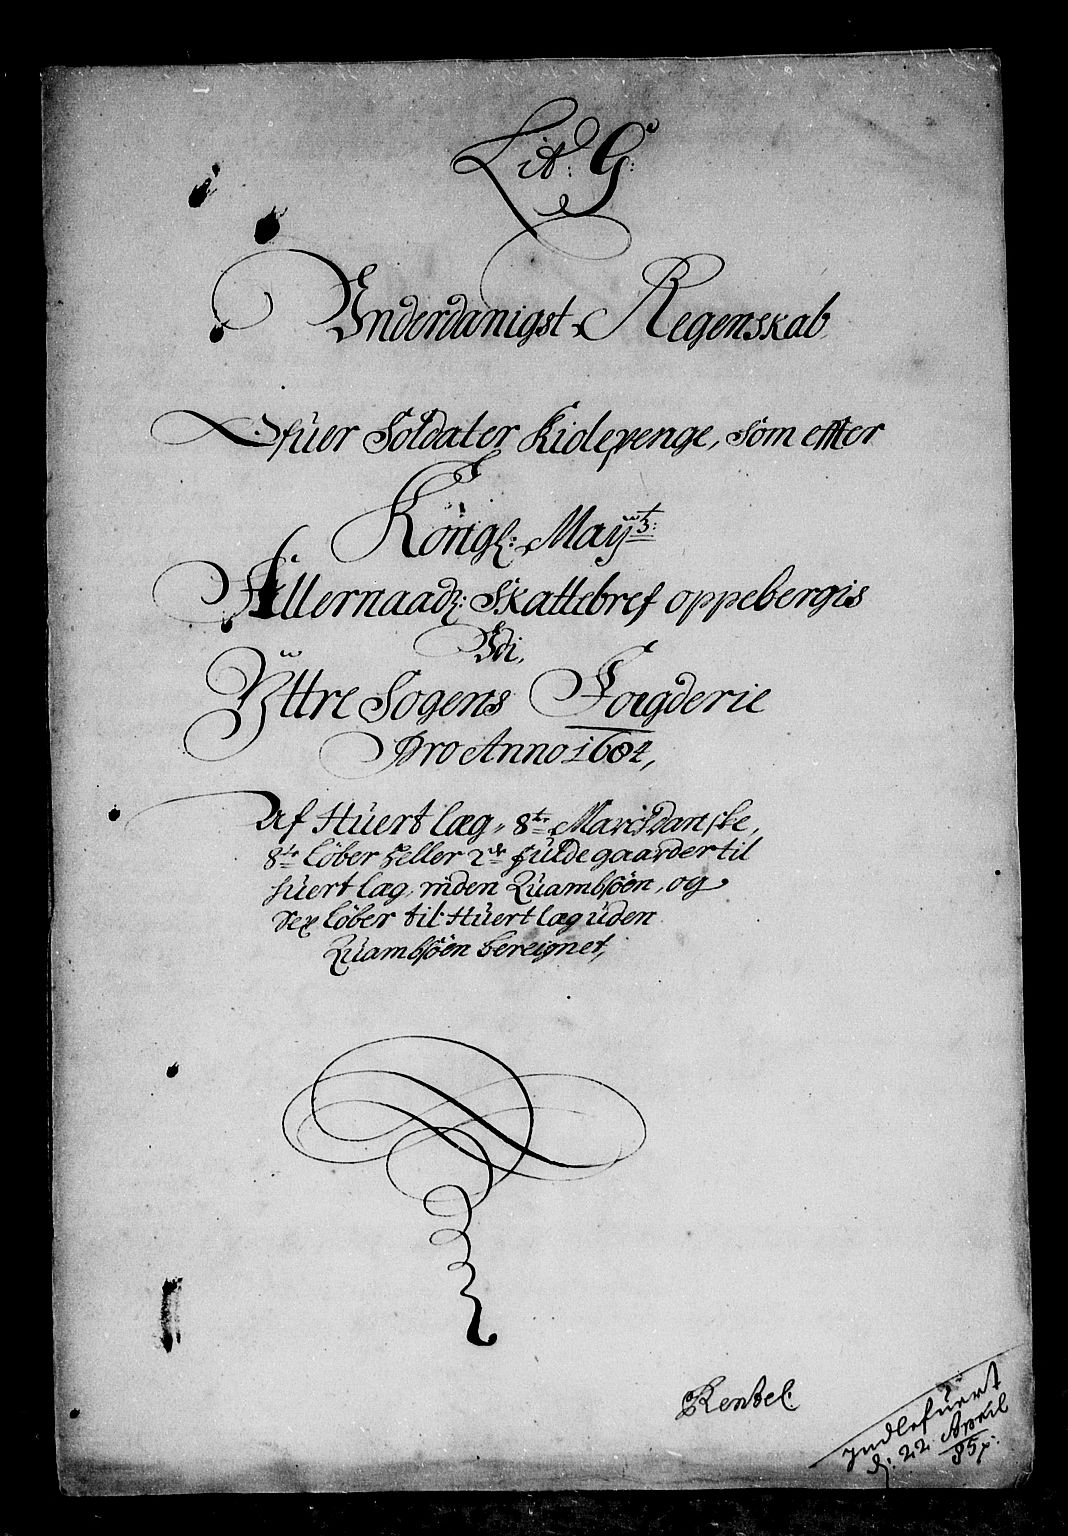 Lit: G:
Underdanigst Regenskab
Ofuer Soldater Kiolepenge, som effter
Kongl: May:tz:
Allernaad: Skattebref oppebergis
Udi,
Yttre Sogens Fougderie
Pro Anno 1684,
Af Huert læg, 8te Marck Danske,
8te løber heller 2de fulde gaarder til
huert læg, inden Quambsöen, og
Sex løber til Huert læg uden
Quambsöen bereignet,
Rentel.
Indlefuert
d: 22 April
85: